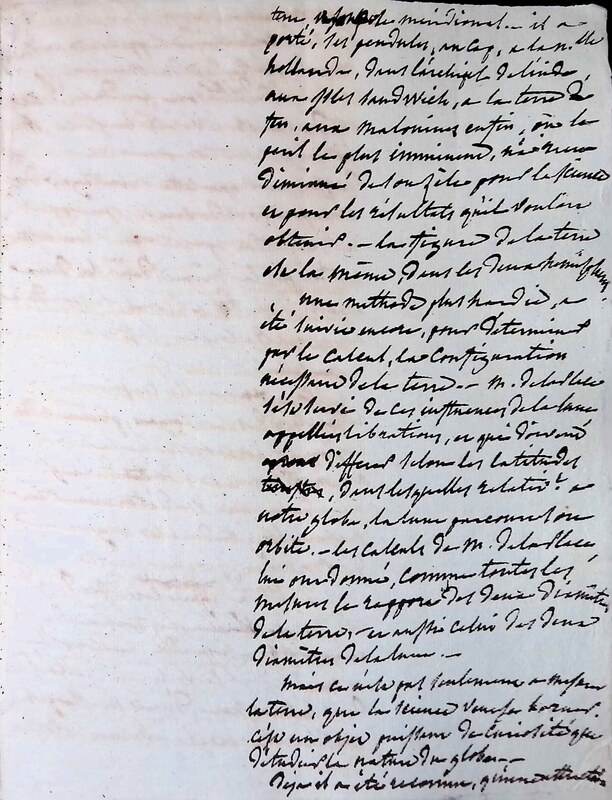 terre, pole méridional. - il a
porté, ses pendules, au cap, a la n.lle
hollande, dans l'archipel de l'inde,
aux isles sandwich, a la terre de
feu, aux malouines enfin, où le
peril le plus imminent, n'a rien
diminué de son zèle pour la science
et pour les résultats qu'il vouloit
obtenir. - la figure de la terre
est la même, dans les deux hemispheres.
une methode plus hardie, a
été suivie encore, pour déterminer
par le calcul, la configuration
nécessaire de la terre. - M. de la place
s'est servi de ces influences de la lune
appellées librations, et qui doivent
différer selon les latitudes
, dans lesquelles relativ.t a
notre globe, la lune parcourt son
orbite. - les calculs de M. de la place
lui ont donné, comme toutes les
mesures le rapport des deux diamètres
de la terre, - et aussi celui des deux
diamètres de la lune. -
Mais ce n'est pas seulement a mesurer
la terre, que la science veut se borner.
c'est un objet puissant de curiosité que
d'étudier la nature du globe. -
Déja il a été reconnu, qu'une